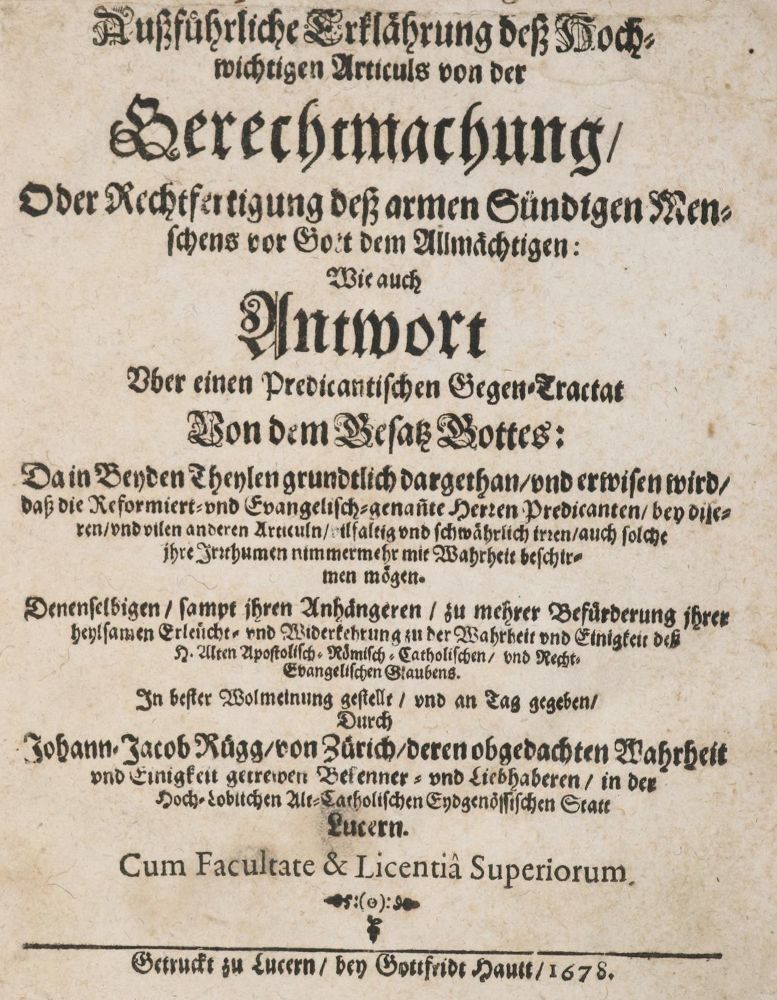 Außführliche Erklährung deß Hoch-
wichtigen Articuls von der
Gerechtmachung/
Oder Rechtfertigung deß armen Sündigen Men-
schens vor Gott dem Allmächtigen:
Wie auch
Antwort
Vber einen Predicantischen Gegen-Tractat
Von dem Gesatz Gottes:
Da in Beyden Theylen grundtlich dargethan/vnd erwisen wird/
daß die Reformiert-vnd Evangelisch-genañte Herren Predicanten/ bey dise-
ren/vnd vilen anderen Articuln/vilfaltig vnd schwährlich irren/auch solche
jhre Irrthumen nimmermehr mit Wahrheit beschir-
men mögen.
Denenselbigen / sampt jhren Anhängeren / zu mehrer Befürderung jhrer
heylsamen Erleücht- vnd Widerkehrung zu der Wahrheit vnd Einigkeit deß
H. Alten Apostolisch- Römisch- Catholischen/ vnd Recht-
Evangelischen Glaubens.
In bester Wolmeinung gestellt / vnd an Tag gegeben/
Durch
Johann-Jacob Rügg/von Zürich/deren obgedachten Wahrheit
vnd Einigkeit getrewen Bekenner- vnd Liebhaberen / in der
Hoch-Loblichen Alt-Catholischen Eydgenössischen Statt
Lucern.
Cum Facultate & Licentiâ Superiorum.
Getruckt zu Lucern / bey Gottfridt Hautt/1678.